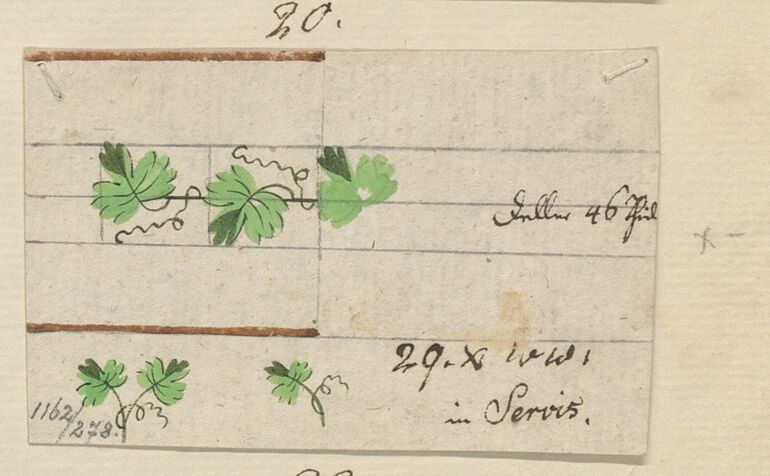 20.
Teller 46 Theil
29. x
in Servis.
1162/
278.